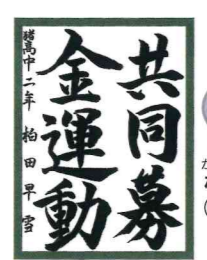 共同募
金運動
猪高中二年 柏田早雪